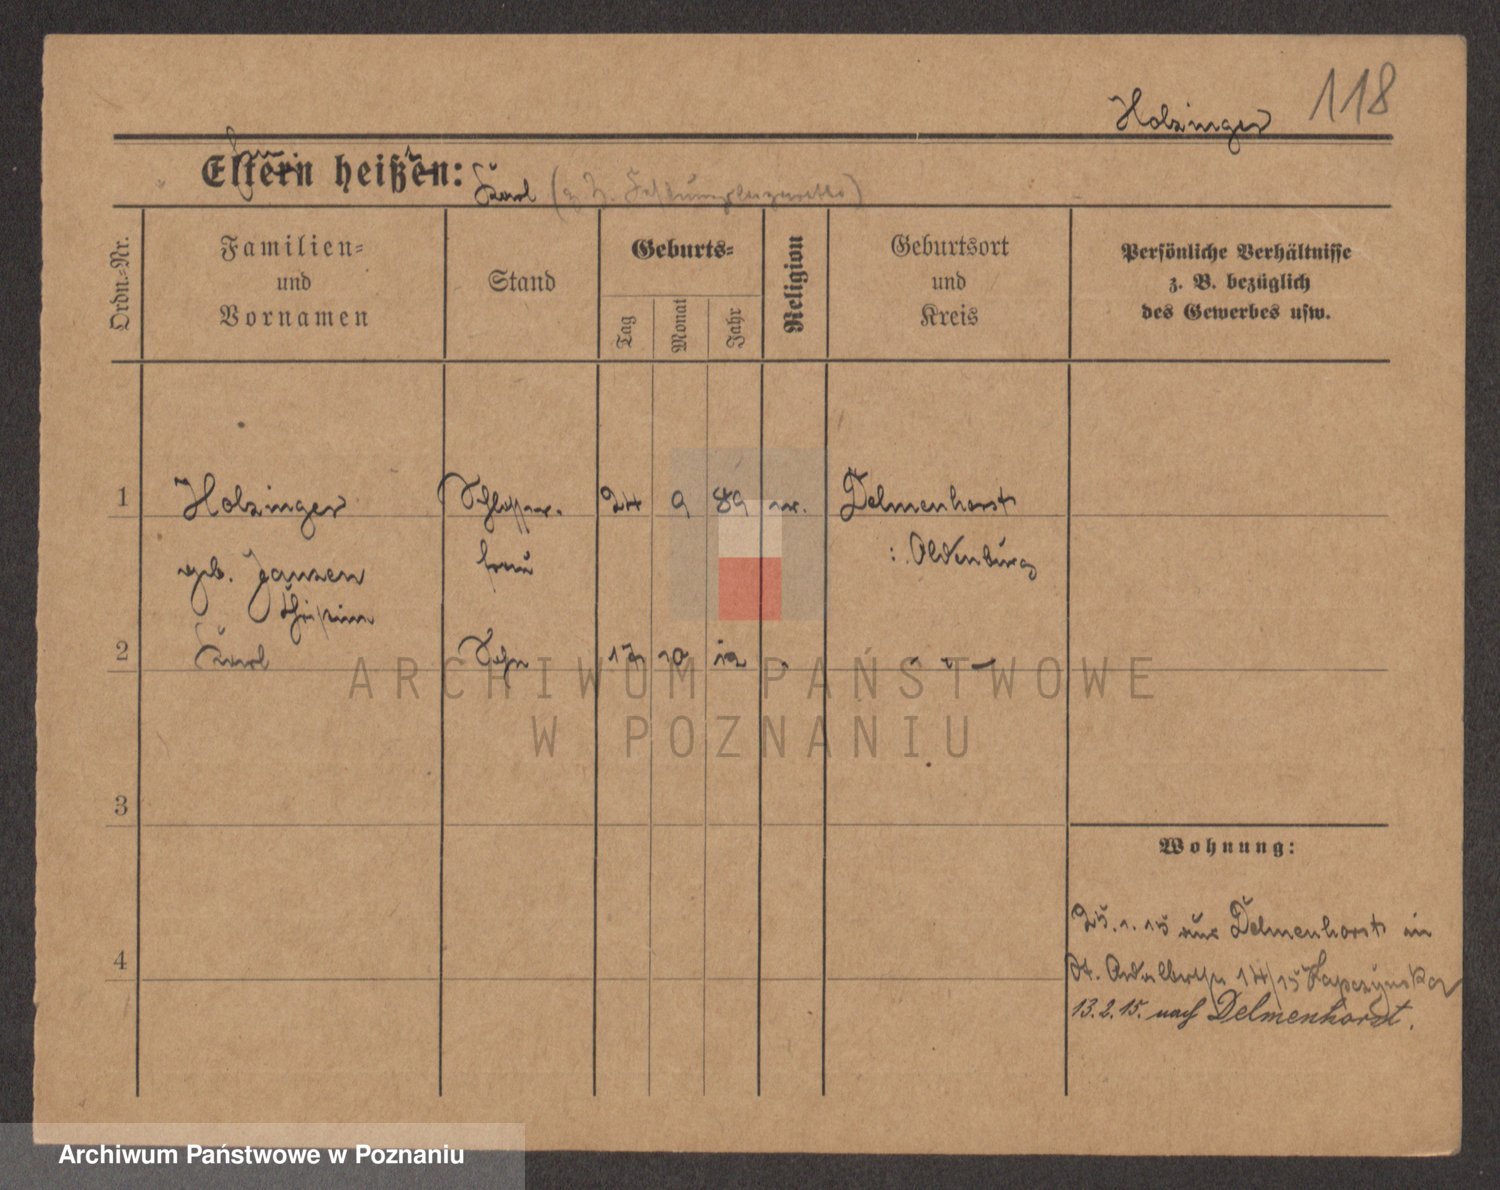 118
Holzinger
Eltern heißen: Karl (z. Z. Festungslazarette)
Ordn.-Nr.
Familien-
und
Vornamen
Stand
Geburts-
Tag
Monat
Jahr
Religion
Geburtsort
und
Kreis
Persönliche Verhältnisse
z. B. bezüglich
des Gewerbes usw.
1 Holzinger Schlosser- 24 9 89 Delmenhorst
geb. Janzen frau Oldenburg
2 Karl Sohn 10 12
3
Wohnung:
25.1.15 aus Delmenhorst in
4 St. Adalbertstr 14/15
13.2.15. nach Delmenhorst.
ARCHIWUM PAŃSTWOWE
W POZNANIU
Archiwum Państwowe w Poznaniu